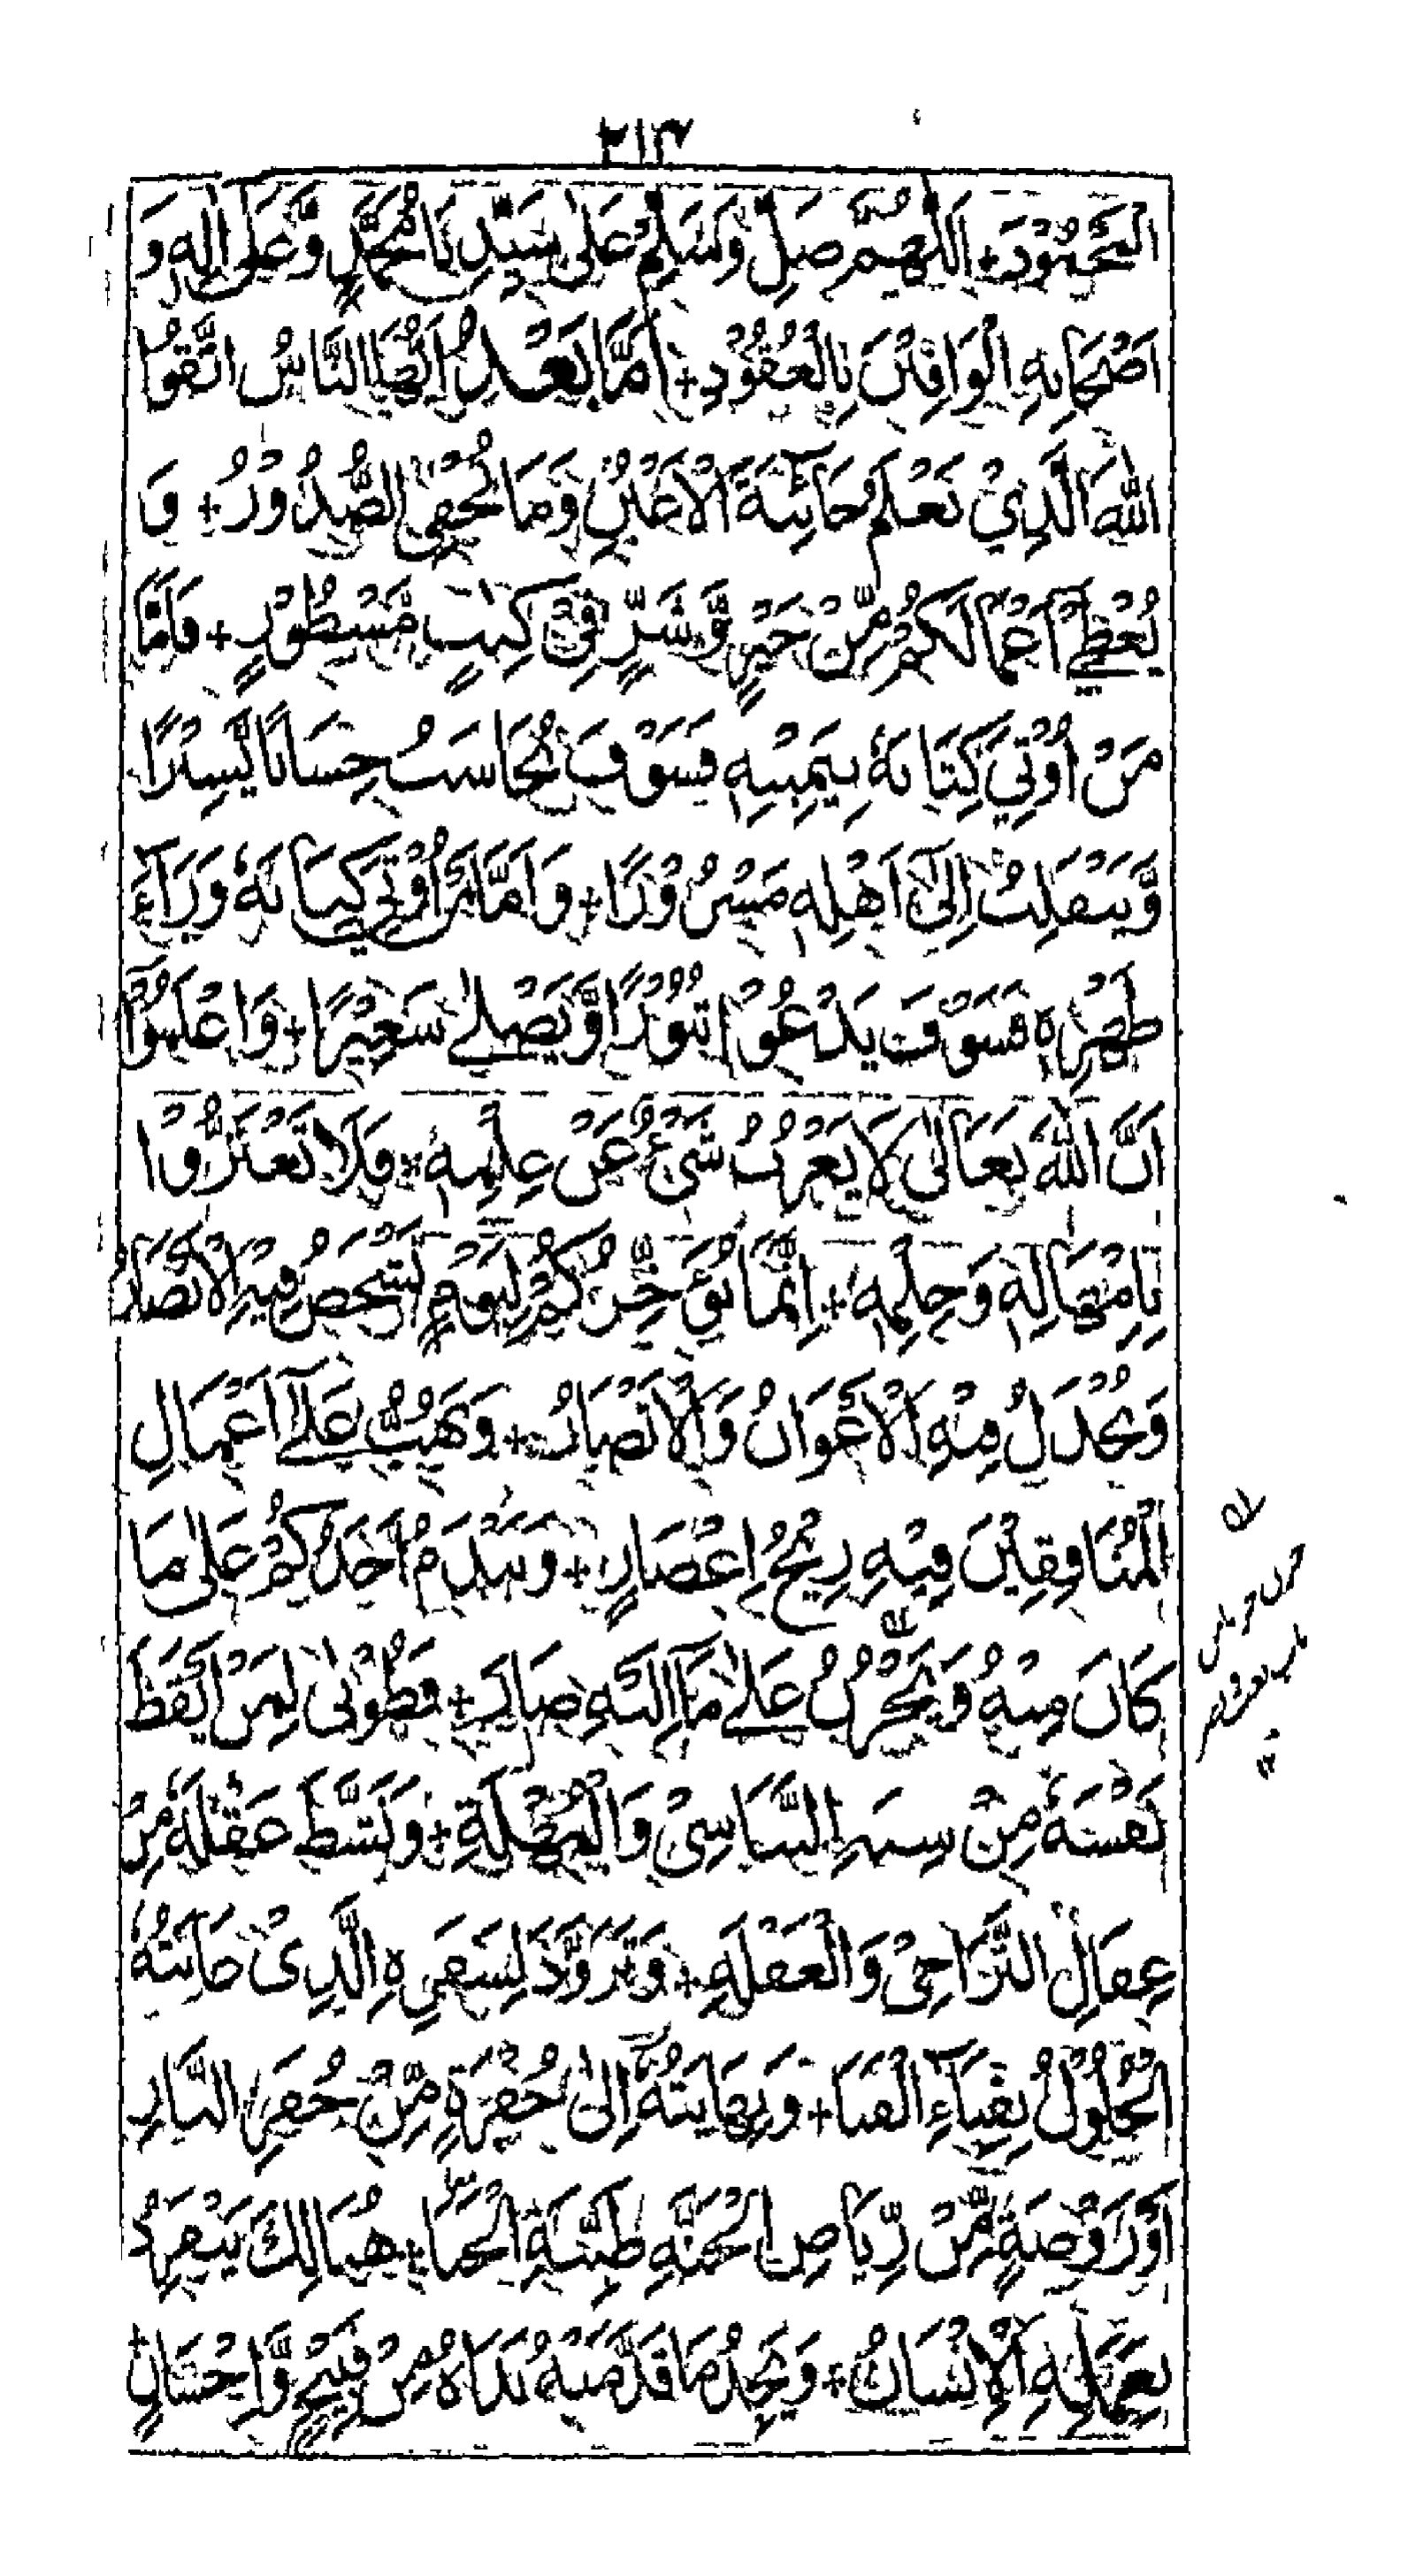 ٢١٣
الْمَحْمُوْدَ + اَللّٰهُمَّ صَلِّ وَسَلِّمْ عَلٰى سَيِّدِنَا مُحَمَّدٍ وَّعَلٰى اٰلِهٖ وَ
اَصْحَابِهِ الْوَافِيْنَ بِالْعُقُوْدِ + اَمَّا بَعْدُ اَيُّهَا النَّاسُ اتَّقُوا
اللّٰهَ الَّذِيْ يَعْلَمُ خَائِنَةَ الْاَعْيُنِ وَمَا تُخْفِى الصُّدُوْرُ + وَ
اَعْمَالَكُمْ مِّنْ خَيْرٍ وَّشَرٍّ فِيْ كِتٰبٍ مَّسْطُوْرٍ + فَاَمَّا
مَنْ اُوْتِيَ كِتَابَهٗ بِيَمِيْنِهٖ فَسَوْفَ يُحَاسَبُ حِسَابًا يَّسِيْرًا
وَّيَنْقَلِبُ اِلٰى اَهْلِهٖ مَسْرُوْرًا + وَاَمَّا مَنْ اُوْتِيَ كِتَابَهٗ وَرَآءَ
ظَهْرِهٖ فَسَوْفَ يَدْعُوْا ثُبُوْرًا وَّيَصْلٰے سَعِيْرًا + وَاعْلَمُوْٓا
اَنَّ اللّٰهَ تَعَالٰى لَا يَعْزُبُ شَيْءٌ عَنْ عِلْمِهٖ + فَلَا تَغْتَرُّوْا
بِاِمْهَالِهٖ وَحِلْمِهٖ + اِنَّمَا يُؤَخِّرُكُمْ لِيَوْمٍ تَشْخَصُ فِيْهِ الْاَبْصَارُ
وَيَخْذُلُ مِنْهِ الْاَعْوَانُ وَالْاَنْصَارُ + وَتَهُبُّ عَلٰٓے اَعْمَالِ
الْمُنَافِقِيْنَ فِيْهِ رِيْحُ اِعْصَارٍ + وَيَنْدَمُ اَحَدُكُمْ عَلٰى مَا
كَانَ مِنْهُ وَيَحْزَنُ عَلٰے مَا اِلَيْهِ صَارَ + فَطُوْبٰى لِمَنْ اَيْقَظَ
نَفْسَهٗ مِنْ سِنَةِ التَّنَاسِيْ وَالْمُهْلَةِ + وَنَشَّطَ عَقْلَهٗ مِنْ
عِقَالِ التَّرَاخِيْ وَالْغَفْلَةِ + وَتَزَوَّدَ لِسَفَرِهِ الَّذِىْ غَايَتُهُ
الْحُلُوْلُ بِفِنَاءِ الْفَنَا + وَنِهَايَتُهٗ اِلٰى حُفْرَةٍ مِّنْ حُفَرِ النَّارِ
اَوْ رَوْضَةٍ مِّنْ رِّيَاضِ الْجَنَّةِ طَيِّبَةِ + هُنَالِكَ يَنْفَرِدُ
بِعَمَلِهِ الْاِنْسَانُ + وَيَجِدُ مَا قَدَّمَتْهُ يَدَاهُ مِنْ قَبِيْحٍ وَّاِحْسَانٍ +